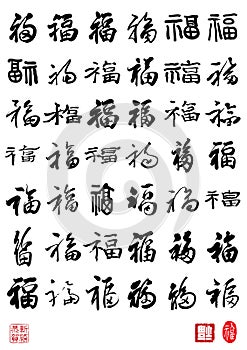 福福福福福福
福福福福福福
福福福福福福
福福福福福福
福福福福福福
福福福福福福
福福福福福福